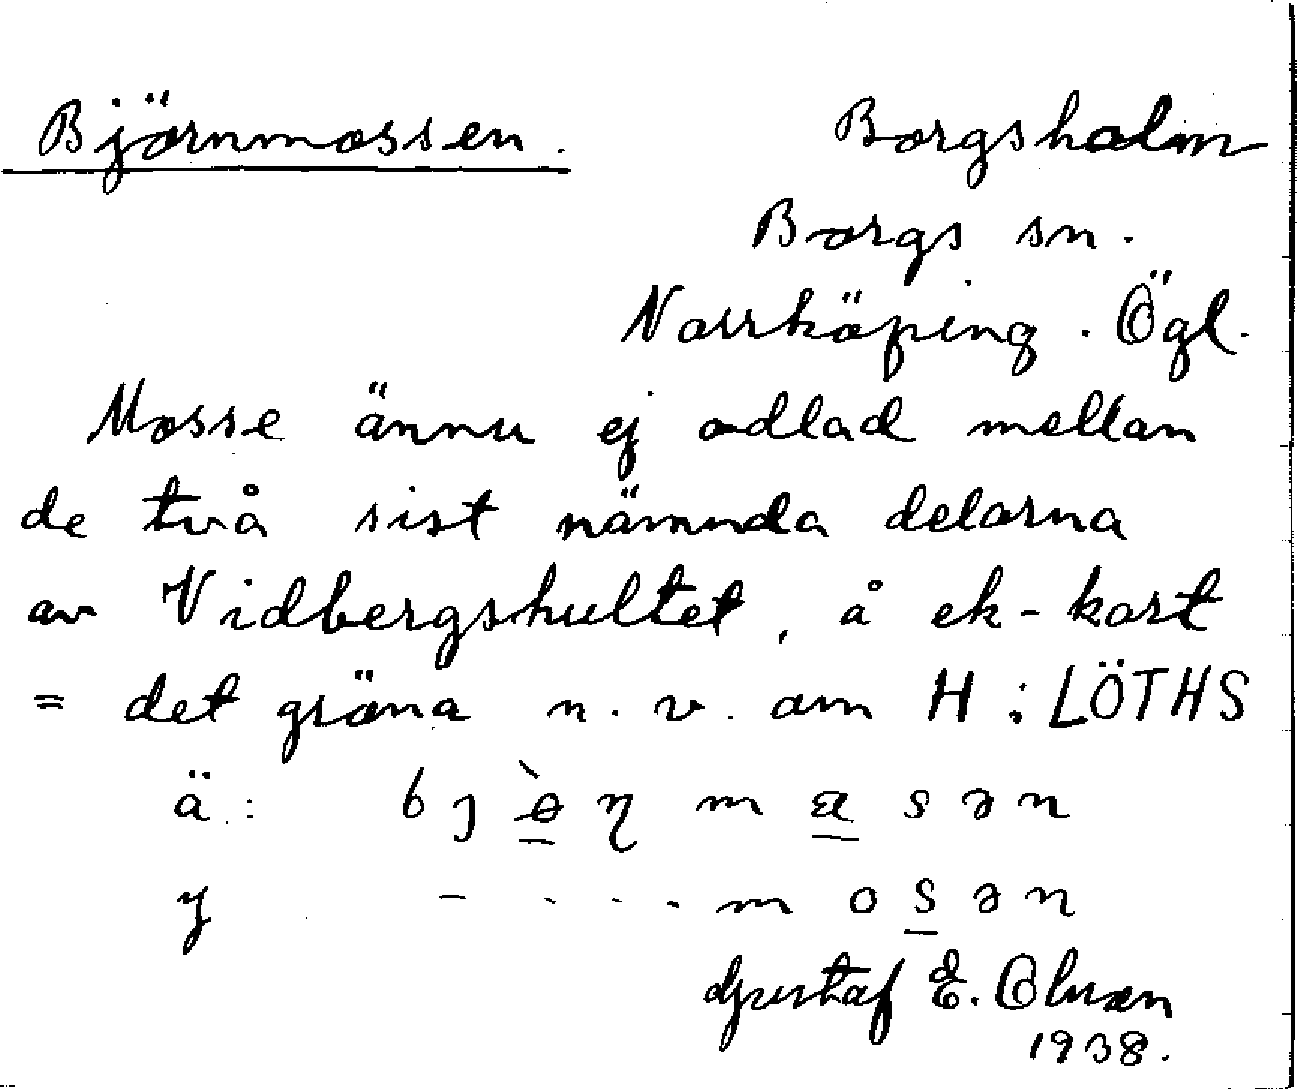 Björnmossen. Borgsholm
Borgs sn.
Norrköping. Ögl.
Mosse ännu ej odlad mellan
de två sist nämnda delarna
av Vidbergshultet, å ek-kart
= det gröna n. v. om H : LÖTHS
ä: m sən
y - . . . . m o s ə n
Gustaf E. Olsson
1938.